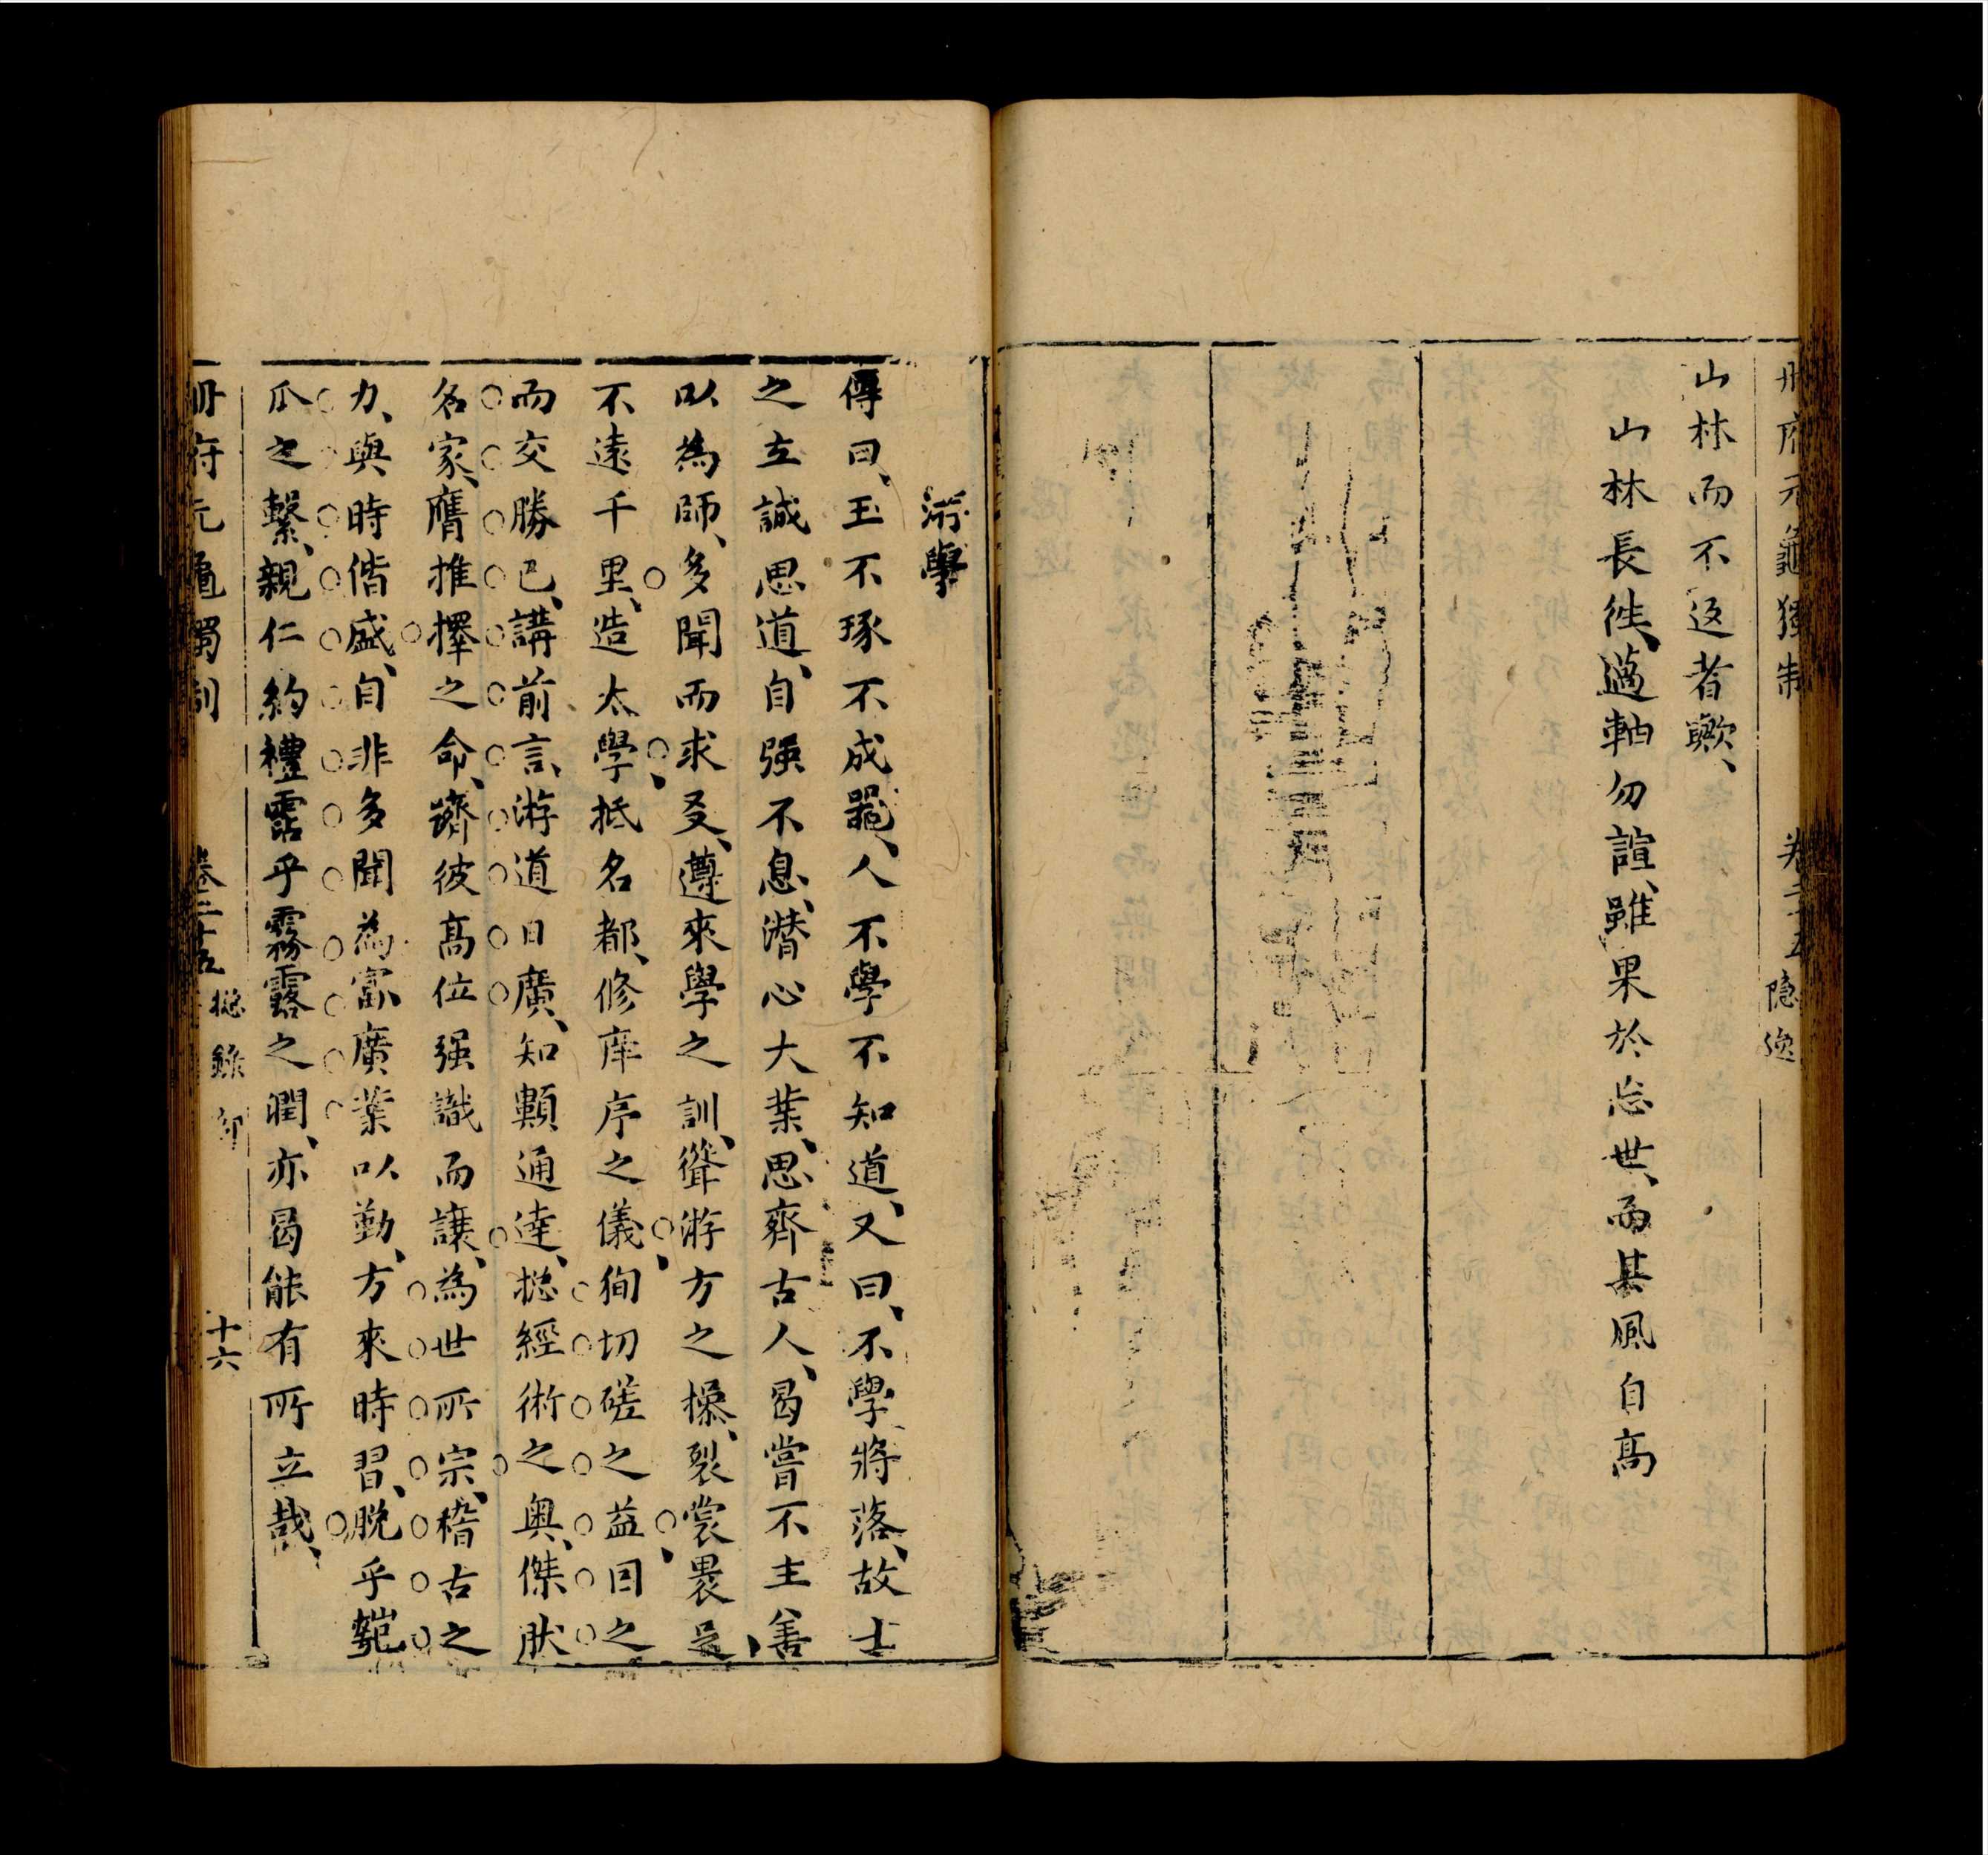 冊府元龜獨制 卷二十五 隱逸
山林而不返者歟、
山林長徃、薖軸勿諠、雖果於忘世、而其風自高
游學
傳曰、玉不琢不成噐、人不學不知道、又曰、不學將落、故士
之立誠思道、自强不息、潛心大業、思齊古人、曷嘗不主善
以為師、多聞而求友、遵來學之訓、聳游方之操、裂裳褁足、
不遠千里、造太學、抵名都、修庠序之儀、狥切磋之益、因之
而交勝巳、講前言、游道日廣、知顆通達、捴經術之奥、傑肰
名家、膺推擇之命、躋彼髙位、强識而讓、為世所宗、稽古之
力、與時偕盛、自非多聞為富、廣業以勤、方來時習、脫乎匏
瓜之繫、親仁約禮、霑乎霧露之潤、亦曷能有所立哉、
冊府元龜獨制 卷二十五 捴錄部 十六